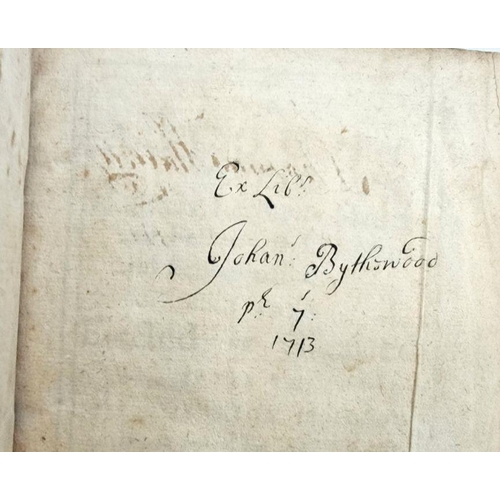 Ex Lib:rs
Johan: Bythswood
7
1713